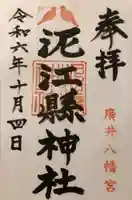 奉拝
廣井八幡宮
泥江縣神社
令和六年十月四日